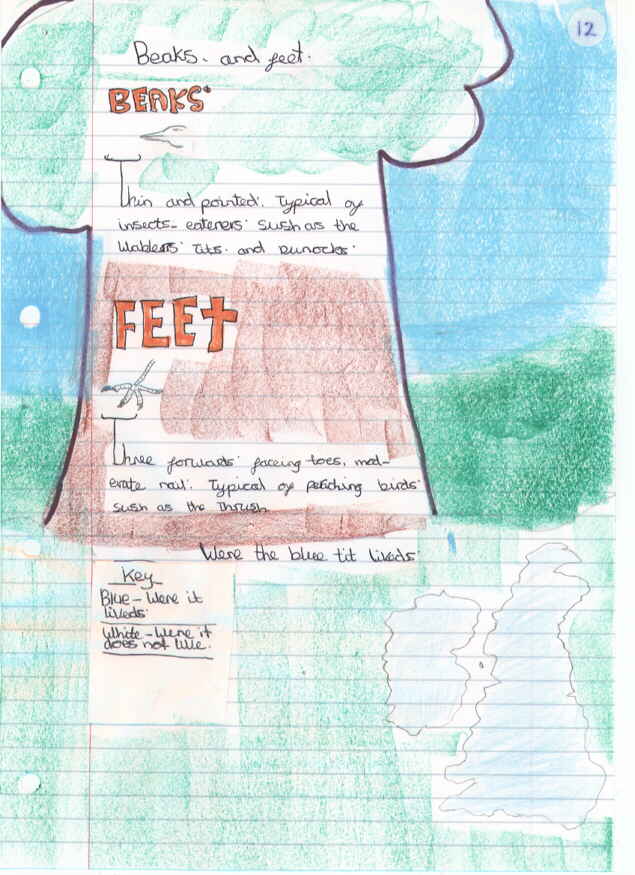 12
Beaks. and feet.
BEAKS
Thin and pointed. Typical of
insects-eateners sush as the
Wablers Tits. and Dunocks.
FEET
Three forwards facing toes, mod-
erate nail. Typical of perching birds
sush as the Thrush.
Were the blue tit liveds.
Key
Blue - Were it
liveds
White - Were it
does not live.